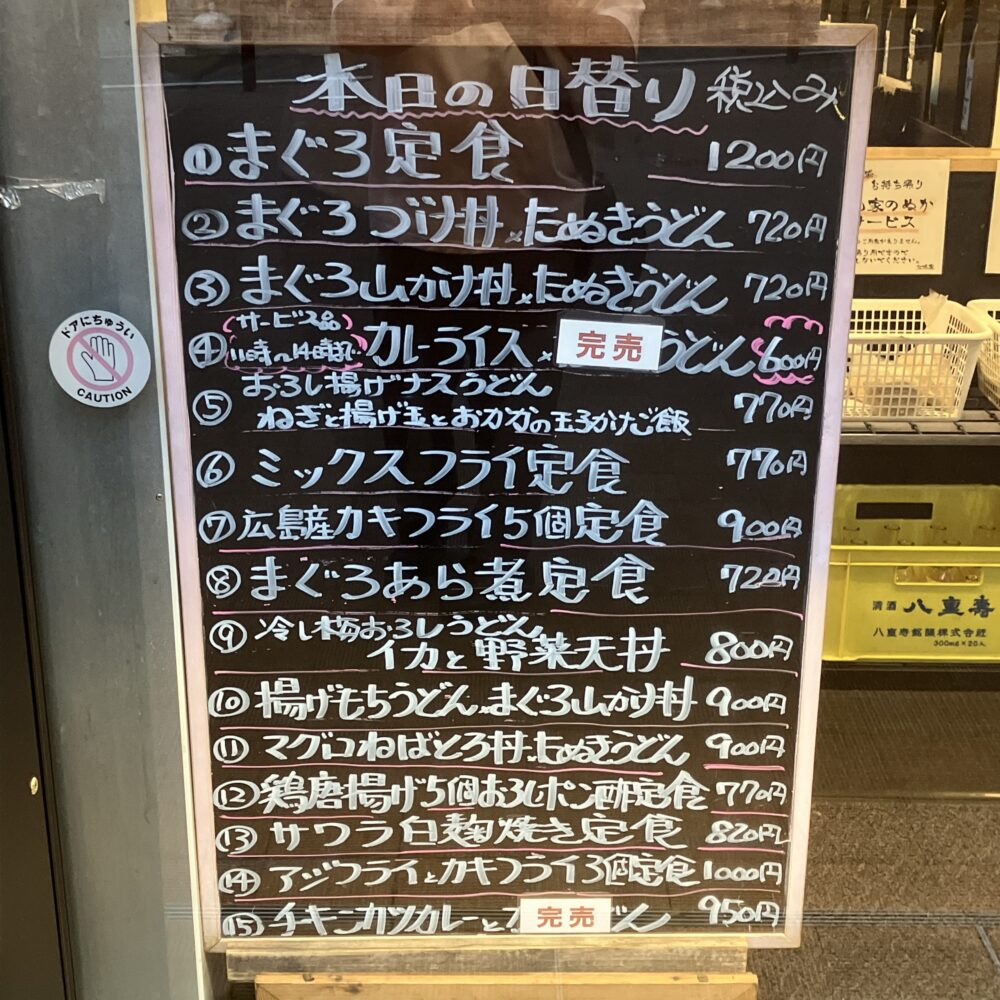 本日の日替り 税込み
① まぐろ定食 1200円
② まぐろづけ丼×たぬきうどん 720円
③ まぐろ山かけ丼×たぬきうどん 720円
④ サービス品 11時〜14時まで カレーライス× 完売 うどん 600円
⑤ おろし揚げナスうどん
ねぎと揚げ玉とおかかの玉子かけご飯 770円
⑥ ミックスフライ定食 770円
⑦ 広島産カキフライ5個定食 900円
⑧ まぐろあら煮定食 720円
⑨ 冷し梅おろしうどん
イカと野菜天丼 800円
⑩ 揚げもちうどん×まぐろ山かけ丼 900円
⑪ マグロねばとろ丼×たぬきうどん 900円
⑫ 鶏唐揚げ5個おろしポン酢定食 770円
⑬ サワラ白麹焼き定食 820円
⑭ アジフライとカキフライ3個定食 1000円
⑮ チキンカツカレーと 完売 どん 950円
ドアにちゅうい
CAUTION
お持ち帰り
家のぬか
サービス
清酒 八重寿
八重寿銘醸株式会社
300ml×20入